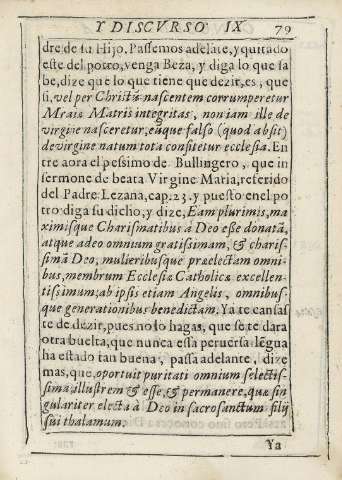 Y DISCVRSO IX 79
dre de su Hijo. Passemos adelãte, y quitado
este del potro, venga Beza, y diga lo que sa
be, dize que lo que tiene que dezir, es, que
si, vel per Christũ nascentem corrumperetur
Mraiæ Matris integritas, non iam ille de
virgine nasceretur, eũque falso (quod absit)
de virgine natum tota consitetur ecclesia. En
tre aora el pessimo de Bullingero, que in
sermone de beata Virgine Maria, referido
del Padre Lezana, cap. 23. y puesto en el po
tro diga su dicho, y dize, Eam plurimis, ma
ximisque Charismatibus à Deo esse donatã,
atque adeo omnium gratissimam, & chariss-
simã Deo, mulieribusque præelectam omni
bus, membrum Ecclesiæ Catholicæ excellen-
tissimum; ab ipsis etiam Angelis, omnibus-
que generationibus benedictam. Ya te cansas
te de dezir, pues no lo hagas, que se te dara
otra buelta, que nunca essa peruersa lẽgua
ha estado tan buena, passa adelante, dize
mas, que, oportuit puritati omnium selectis-
sima, illustrem & esse, & permanere, quæ sin
gulariter electa à Deo in sacrosanctum filij
sui thalamum.
Ya